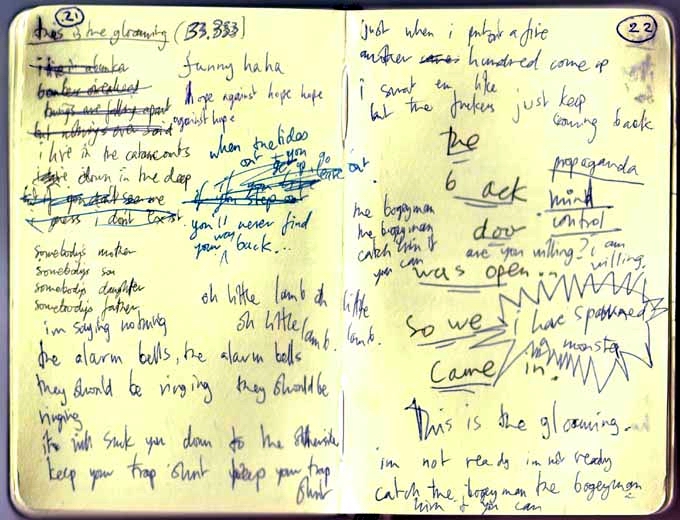 21
this is the gloaming (33.333)
i live in a bunka
bombers overhead
things are falling apart
but nothing's ever said
i live in the catacombs
down in the deep
press i don't exist
funny haha
hope against hope hope
against hope
when the tides
out you
go
if you step out
you'll never find
your way back...
somebodys mother
somebodys son
somebodys daughter
somebodys father
im saying nothing
oh little lamb oh little
oh little lamb. lamb.
the alarm bells, the alarm bells
they should be ringing they should be
ringing
it will suck you down to the otherside
keep your trap shut keep your trap
shut
22
just when i put out a fire
another hundred come up
i swat em like
but the fuckers just keep
coming back
the
back
door
was open...
so we
came in.
propaganda
mind
control
the bogeyman
the bogeyman
catch him if
you can
are you willing? i am
willing.
i have spawned
a monster
This is the gloaming.
im not ready im not ready
catch the bogeyman the bogeyman
him if you can